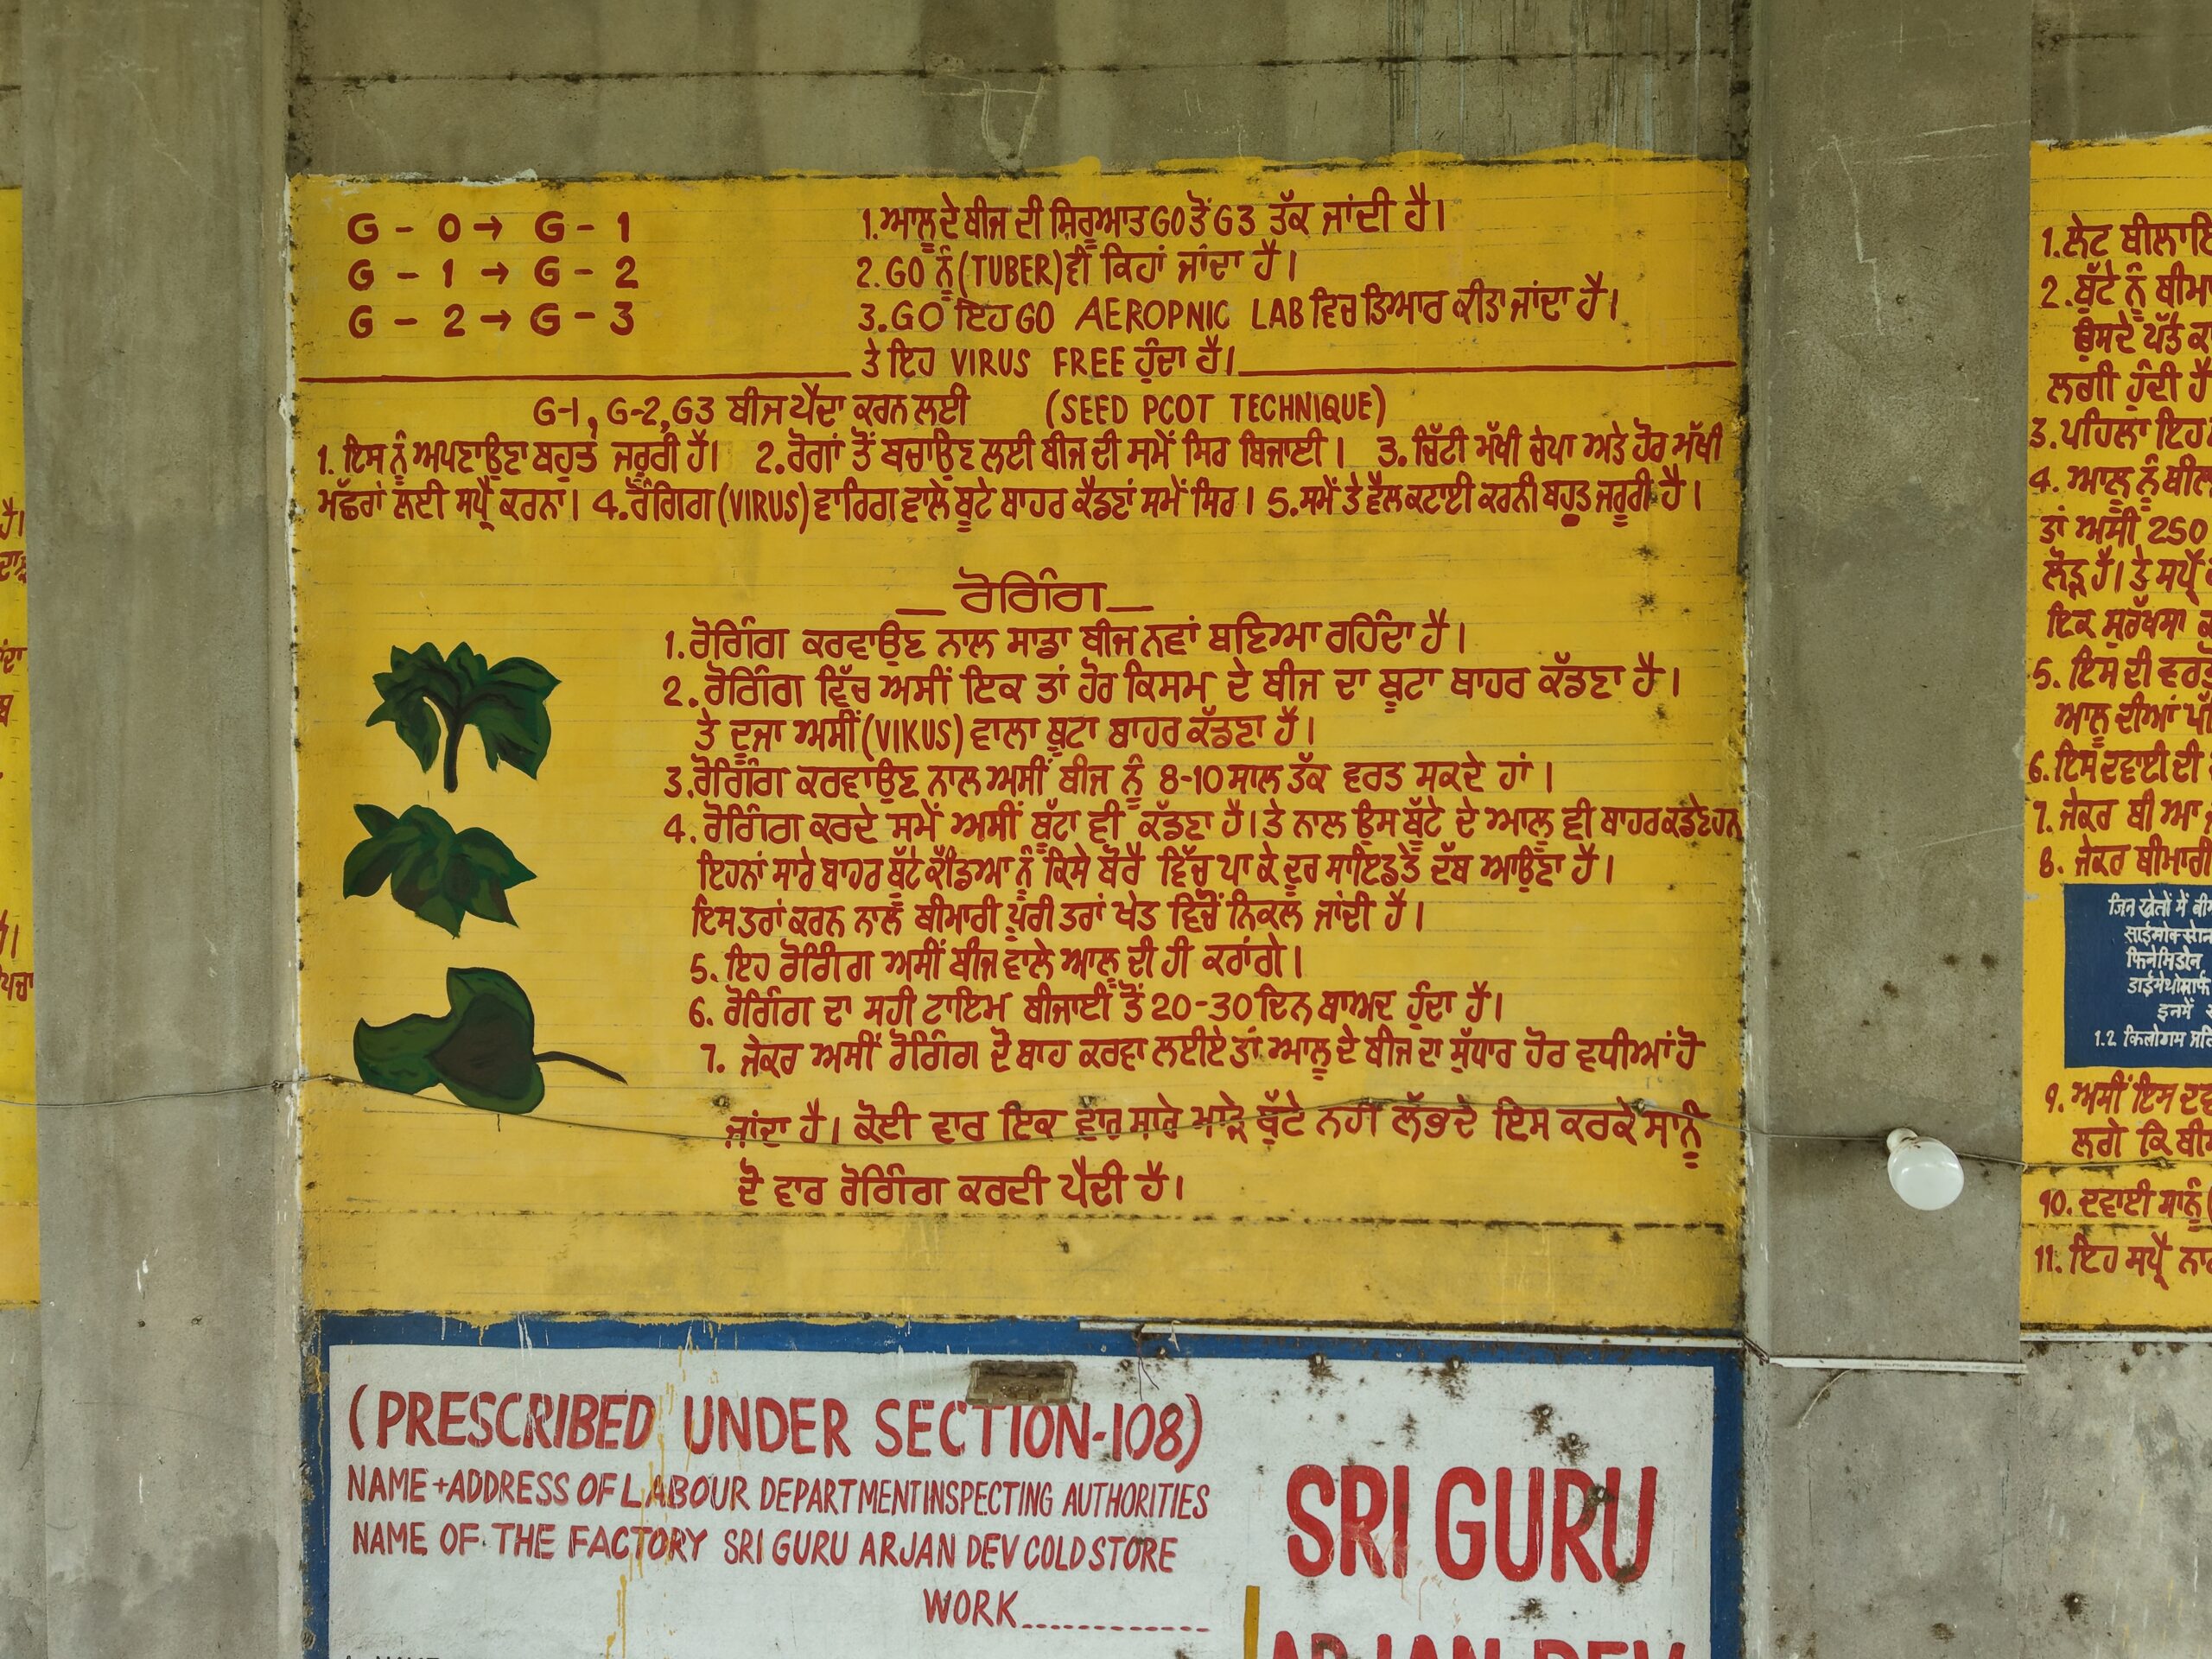 G - 0 → G - 1
G - 1 → G - 2
G - 2 → G - 3
1. ਆਲੂ ਦੇ ਬੀਜ ਦੀ ਸ਼ਿਰੂਆਤ G0 ਤੋਂ G3 ਤੱਕ ਜਾਂਦੀ ਹੈ।
2. G0 ਨੂੰ (TUBER) ਵੀ ਕਿਹਾਂ ਜਾਂਦਾ ਹੈ।
3. GO ਇਹ GO AEROPNIC LAB ਵਿਚ ਤਿਆਰ ਕੀਤਾ ਜਾਂਦਾ ਹੈ।
ਤੇ ਇਹ VIRUS FREE ਹੁੰਦਾ ਹੈ।
G-1, G-2, G3 ਬੀਜ ਪੈਦਾ ਕਰਨ ਲਈ (SEED PCOT TECHNIQUE)
1. ਇਸ ਨੂੰ ਅਪਣਾਉਣਾ ਬਹੁਤ ਜਰੂਰੀ ਹੈ। 2. ਰੋਗਾਂ ਤੋਂ ਬਚਾਉਣ ਲਈ ਬੀਜ ਦੀ ਸਮੇਂ ਸਿਰ ਬਿਜਾਈ। 3. ਚਿੱਟੀ ਮੱਖੀ ਚੇਪਾ ਅਤੇ ਹੋਰ ਮੱਖੀ
ਮੱਛਰਾਂ ਲਈ ਸਪ੍ਰੈ ਕਰਨਾ। 4. ਰੋਗਿੰਗ (VIRUS) ਵਾਰਿਗ ਵਾਲੇ ਬੂਟੇ ਬਾਹਰ ਕੈਡਣਾਂ ਸਮੇਂ ਸਿਰ। 5. ਸਮੇਂ ਤੇ ਵੈਲ ਕਟਾਈ ਕਰਨੀ ਬਹੁਤ ਜਰੂਰੀ ਹੈ।
ਰੋਗਿੰਗ
1. ਰੋਗਿੰਗ ਕਰਵਾਉਣ ਨਾਲ ਸਾਡਾ ਬੀਜ ਨਵਾਂ ਬਣਿਆ ਰਹਿੰਦਾ ਹੈ।
2. ਰੋਗਿੰਗ ਵਿੱਚ ਅਸੀਂ ਇਕ ਤਾਂ ਹੋਰ ਕਿਸਮ ਦੇ ਬੀਜ ਦਾ ਬੂਟਾ ਬਾਹਰ ਕੱਡਣਾ ਹੈ।
ਤੇ ਦੂਜਾ ਅਸੀਂ (VIKUS) ਵਾਲਾ ਬੂਟਾ ਬਾਹਰ ਕੱਡਣਾ ਹੈ।
3. ਰੋਗਿੰਗ ਕਰਵਾਉਣ ਨਾਲ ਅਸੀਂ ਬੀਜ ਨੂੰ 8-10 ਸਾਲ ਤੱਕ ਵਰਤ ਸਕਦੇ ਹਾਂ।
4. ਰੋਗਿੰਗ ਕਰਦੇ ਸਮੇਂ ਅਸੀਂ ਬੂੱਟਾ ਵੀ ਕੱਡਣਾ ਹੈ। ਤੇ ਨਾਲ ਉਸ ਬੂੱਟੇ ਦੇ ਆਲੂ ਵੀ ਬਾਹਰ ਕਡਣੇ ਹਨ
ਇਹਨਾਂ ਸਾਰੇ ਬਾਹਰ ਬੂੱਟੇ ਕੱਡਿਆ ਨੂੰ ਕਿਸੇ ਬੋਰੈ ਵਿੱਚ ਪਾ ਕੇ ਦੂਰ ਸਾਇਡ ਤੇ ਦੱਬ ਆਉਣਾ ਹੈ।
ਇਸ ਤਰਾਂ ਕਰਨ ਨਾਲ ਬੀਮਾਰੀ ਪੂਰੀ ਤਰਾਂ ਖੇਤ ਵਿੱਚੋਂ ਨਿਕਲ ਜਾਂਦੀ ਹੈ।
5. ਇਹ ਰੋਗਿੰਗ ਅਸੀਂ ਬੀਜ ਵਾਲੇ ਆਲੂ ਦੀ ਹੀ ਕਰਾਂਗੇ।
6. ਰੋਗਿੰਗ ਦਾ ਸਹੀ ਟਾਇਮ ਬੀਜਾਈ ਤੋਂ 20-30 ਦਿਨ ਬਾਅਦ ਹੁੰਦਾ ਹੈ।
7. ਜੇਕਰ ਅਸੀਂ ਰੋਗਿੰਗ ਦੋ ਬਾਹ ਕਰਵਾ ਲਈਏ ਤਾਂ ਆਲੂ ਦੇ ਬੀਜ ਦਾ ਸੁੱਧਾਰ ਹੋਰ ਵਧੀਆਂ ਹੋ
ਜਾਂਦਾ ਹੈ। ਕੋਈ ਵਾਰ ਇਕ ਵਾਰ ਸਾਰੇ ਮਾੜੇ ਬੂੱਟੇ ਨਹੀ ਲੱਭਦੇ ਇਸ ਕਰਕੇ ਸਾਨੂੰ
ਦੋ ਵਾਰ ਰੋਗਿੰਗ ਕਰਦੀ ਪੈਂਦੀ ਹੈ।
(PRESCRIBED UNDER SECTION-108)
NAME + ADDRESS OF LABOUR DEPARTMENT INSPECTING AUTHORITIES
NAME OF THE FACTORY SRI GURU ARJAN DEV COLD STORE
WORK
SRI GURU
ARJAN DEV
1. ਲੇਟ
2. ਬੂੱਟੇ ਨੂੰ
ਉਸਦੇ ਪੱਤੇ
ਲਗੀ ਹੁੰਦੀ ਹੈ
3. ਪਹਿਲਾ ਇਹ
4. ਆਲੂ ਨੂੰ
ਤਾਂ ਅਸੀਂ 250
ਲੋੜ ਹੈ। ਤੇ ਸਪ੍ਰੈ
ਇਕ ਸੁਰੱਖਸਾ
5. ਇਸ ਦੀ
ਆਲੂ ਦੀਆਂ
6. ਇਸ ਦਵਾਈ ਦੀ
7. ਜੇਕਰ ਬੀ ਆ
8. ਜੇਕਰ ਬੀਮਾਰੀ
जिन खेतों में
साईमोक्सेनि
फिनेमिडोन
डाईमेथोमार्फ
इनमें
1.2 किलोगाम
9. ਅਸੀਂ ਇਸ
ਲਗੇ ਕਿ
10. ਦਵਾਈ ਸਾਨੂੰ
11. ਇਹ ਸਪ੍ਰੈ